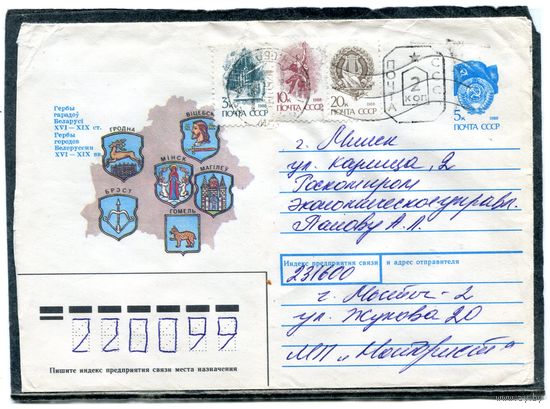 3к
ПОЧТА СССР
1988
10к
ПОЧТА СССР
1988
20к
ПОЧТА СССР
1988
ПОЧТА
2
КОП
СССР
5к
ПОЧТА СССР
Гербы
гарадоў
Беларусі
XVI – XIX ст.
Гербы
городов
Белоруссии
XVI – XIX вв.
ГРОДНА
ВІЦЕБСК
МІНСК
МАГІЛЁЎ
БРЭСТ
ГОМЕЛЬ
г. Минск
ул. Карница, 2
Госкомпром
Экономическое управл.
Попову А.Л.
Индекс предприятия связи и адрес отправителя
231600
г. Мосты-2
ул. Жукова 20
МП
220099
Пишите индекс предприятия связи места назначения